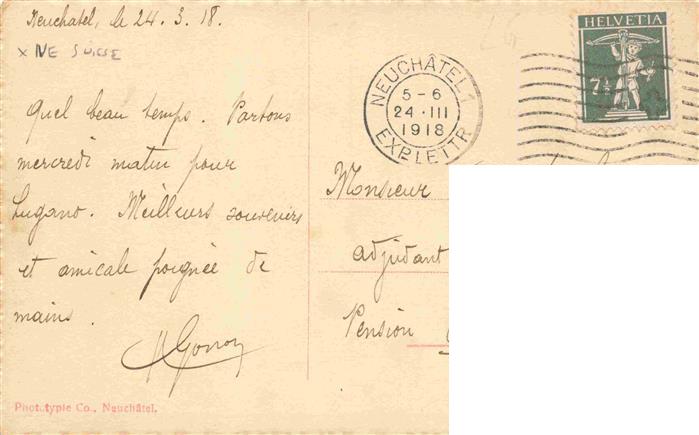 Neuchatel, le 24. 3. 18.
x NE SUISSE
Quel beau temps. Partons
mercredi matin pour
Lugano. Meilleurs souvenirs
et amicale poignée de
mains.
Phototypie Co., Neuchâtel.
HELVETIA
7½
NEUCHÂTEL 1
5-6
24.III
1918
EXP. LETTR.
Monsieur
adjudant
Pension